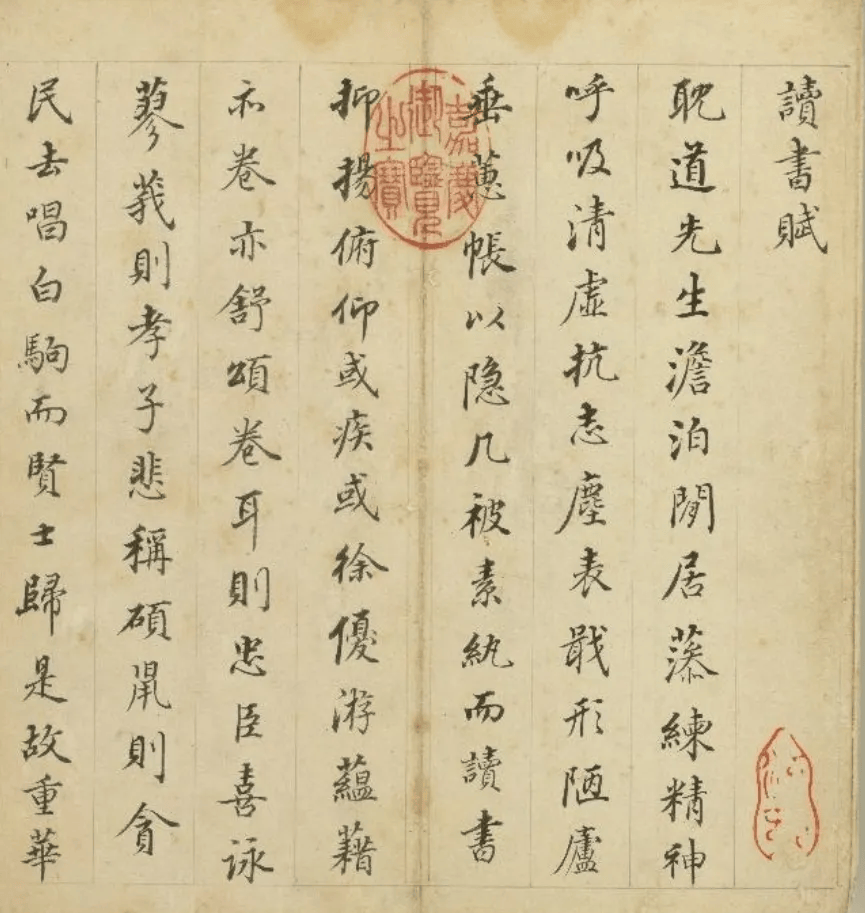 讀書賦
耽道先生澹泊閒居藻練精神
呼吸清虛抗志塵表戢形陋廬
垂蕙帳以隐几被素紈而讀書
抑揚俯仰或疾或徐優游蘊藉
亦卷亦舒頌卷耳則忠臣喜詠
蓼莪則孝子悲稱碩鼠則貪
民去唱白駒而賢士歸是故重華
嘉慶御覽之寶